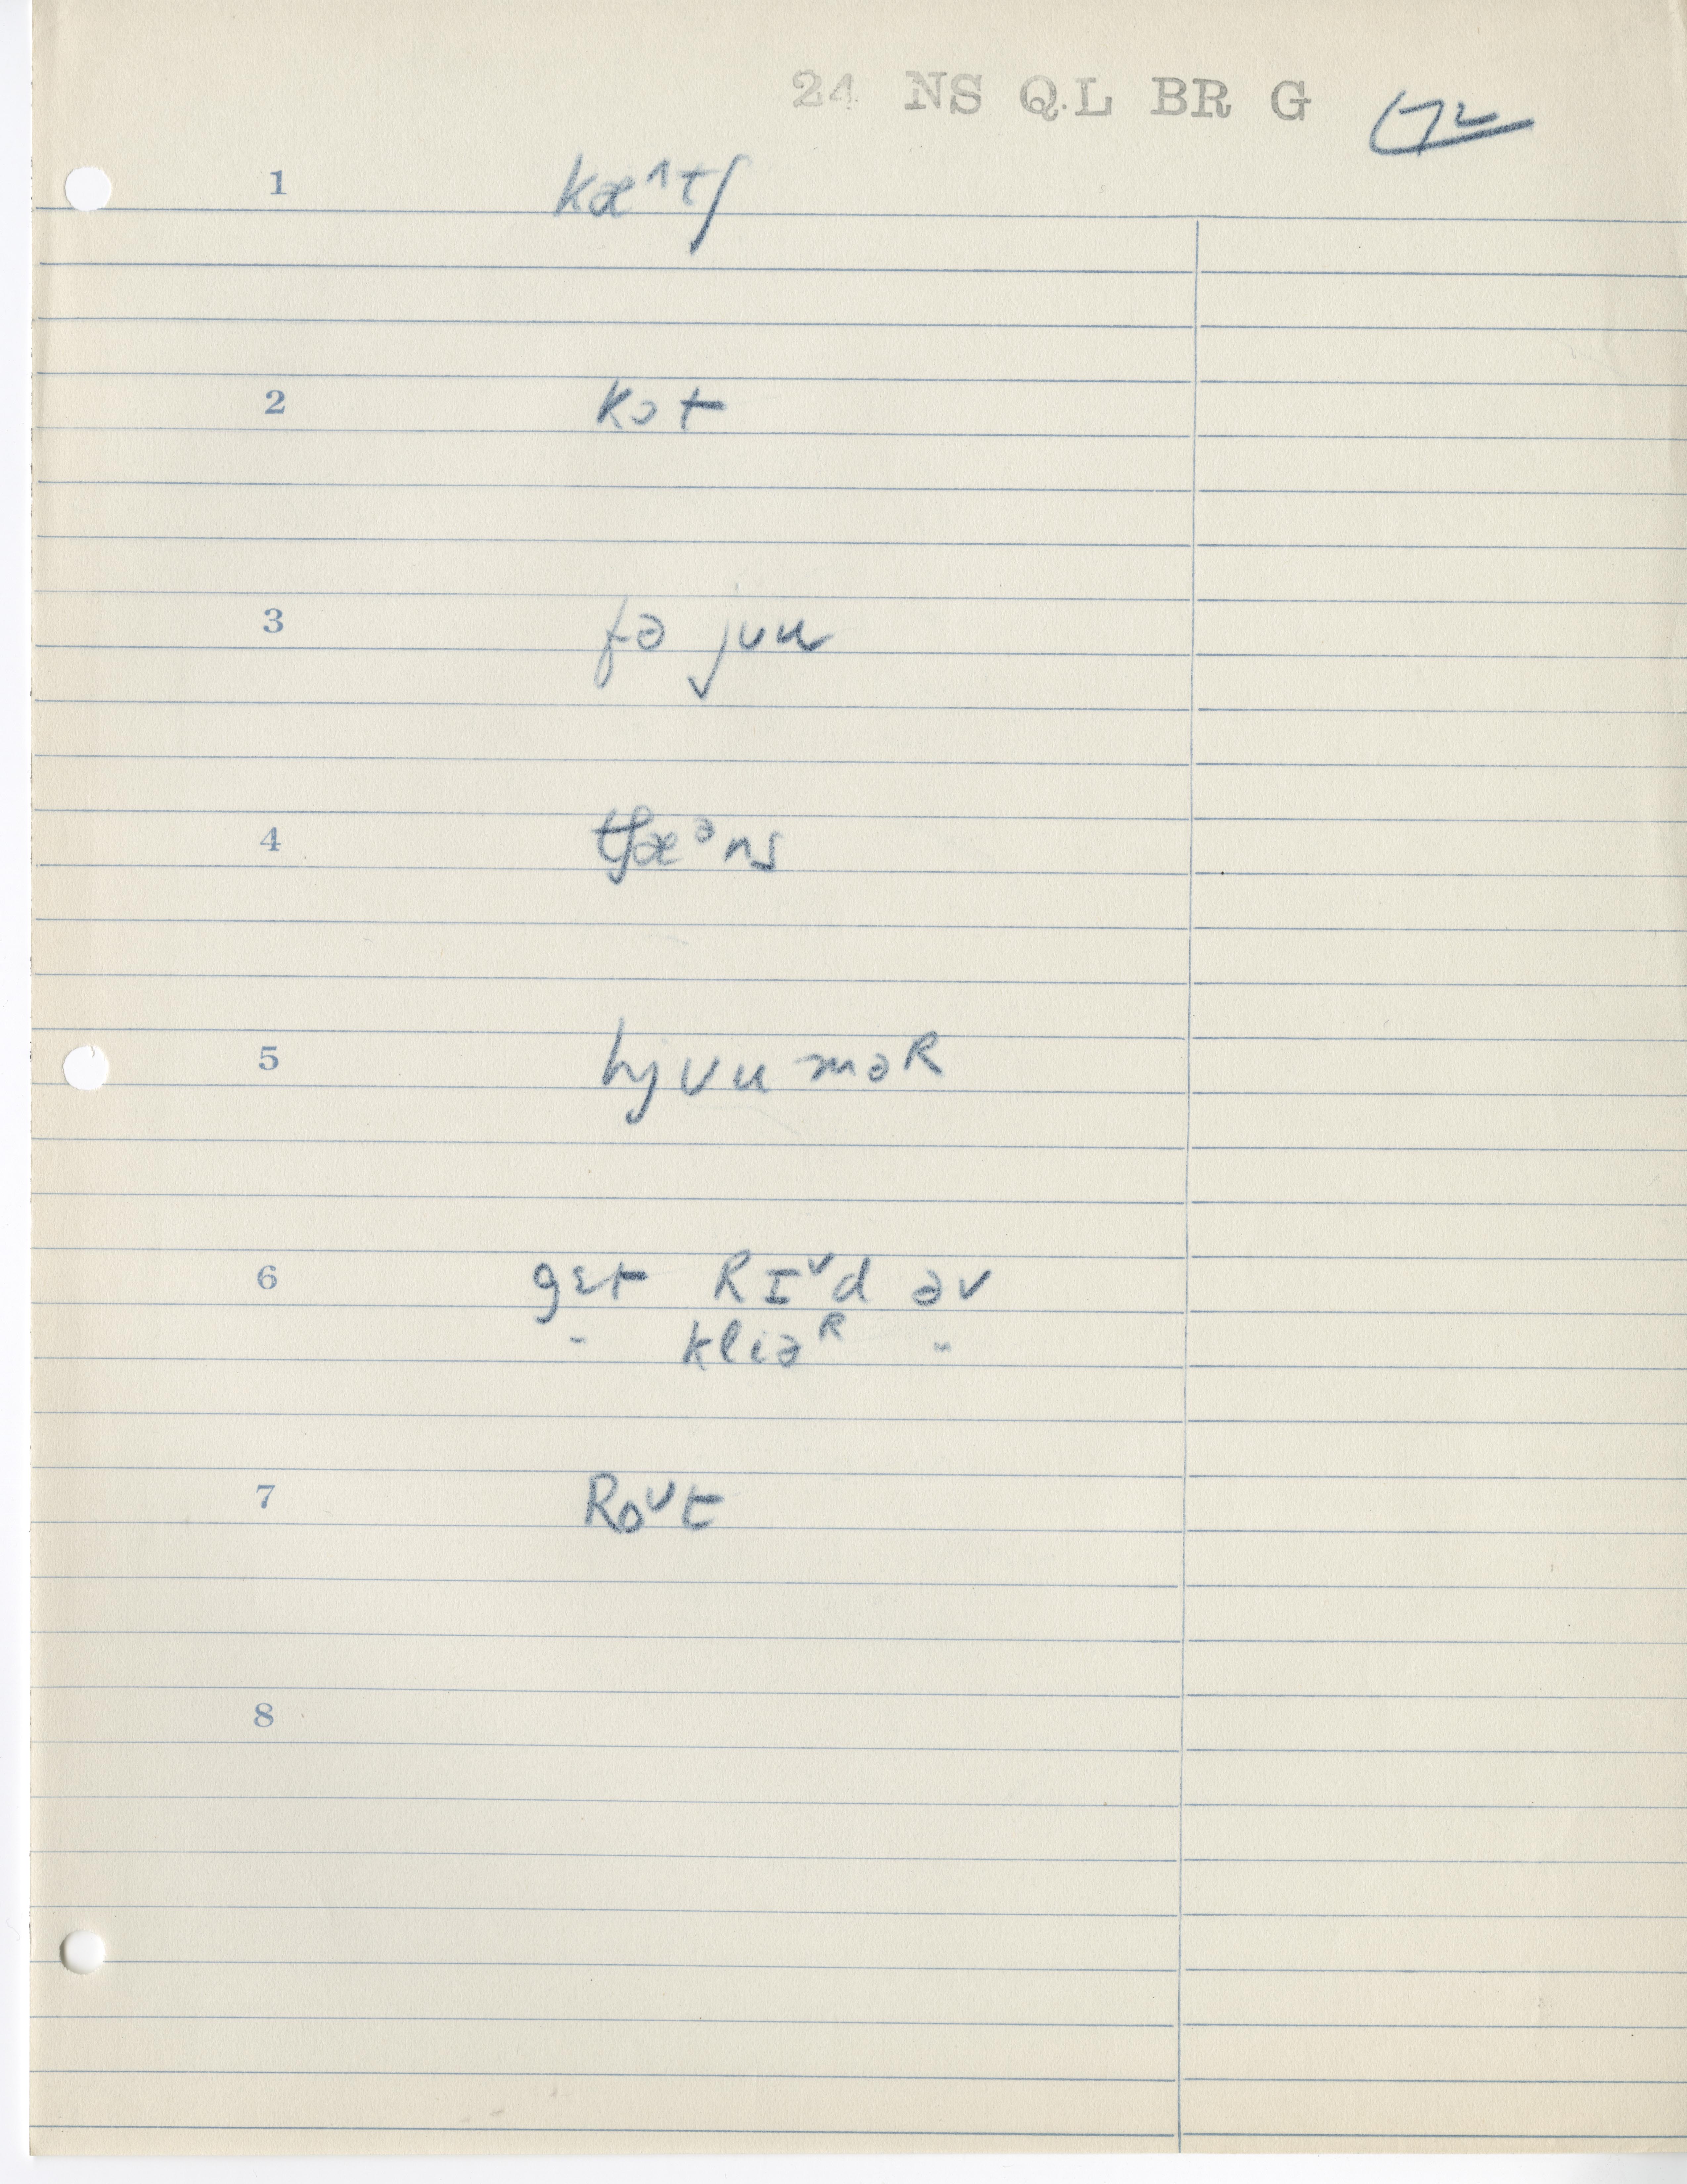 24 NS QL BR G 72
1 kæ^tʃ
2 kɔt
3 fə juu
4 tʃæᵊns
5 hjᴜumɚR
6 gɛt Rɪᵛd əv
" kliəᴿ "
7 Roᵛt
8